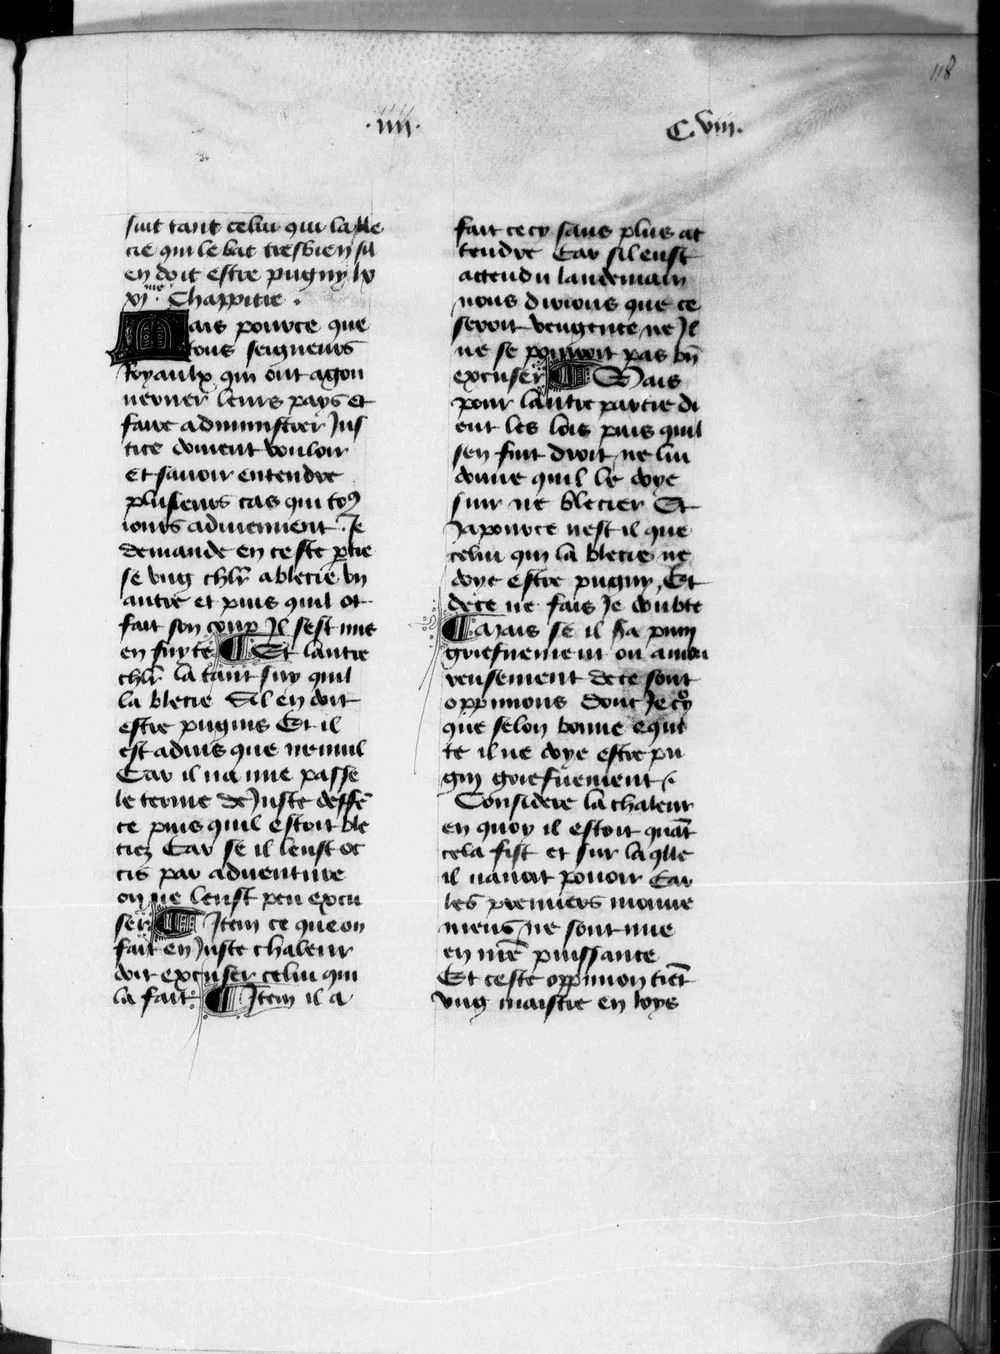 118
.iiii.
C. viii.
suit tant celui qui la ble
cie qui le bat tresbien sil
en doit estre pugny lx
xi.me Chappitre .
Mais pource que
tous seigneurs
Royaulx qui ont agou
verner leurs pays et
faire administrer Jus
tice doivent vouloir
et savoir entendre
plusieurs cas qui to9
iours adviennent . Je
demande en ceste ptie
se ung chlr a blecie un
autre et puis quil ot
fait son coup Il sest mis
en fuyte ¶ Et lautre
chlr la tant suy quil
la blecie Sil en doit
estre pugnis Et il
est advis que nennil
Car il na mie passe
le terme de Juste deffe
ce puis quil estoit ble
ciez Car se il leust oc
cis par adventure
on ne leust peu excu
ser ¶ Item ce que on
fait en Juste chaleur
doit excuser celui qui
la fait . ¶ Item il a
fait cecy sans plus at
tendre Car sil eust
attendu landemain
nous dirions que ce
seroit vengence ne Il
ne se pouvoit pas bn
excuser ¶ Mais
pour lautre partie di
ent les lois puis quil
sen fuit droit ne lui
donne quil le doye
suir ne blecier Et
Ja pource nest il que
celui qui la blecie ne
doye estre pugny Et
dece ne fais Je doubte
¶ Mais se il sa puni
griefuement ou amou
reusement dece sont
oppinions dont Je
que selon bonne equi
te il ne doye estre pu
gny griefuement
Considere la chaleur
en quoy il estoit quat
cela fist et sur laqlle
il navoit povoir Car
les premiers mouue
mens ne sont mie
en nre puissance
Et ceste oppinion tiet
ung maistre en loys